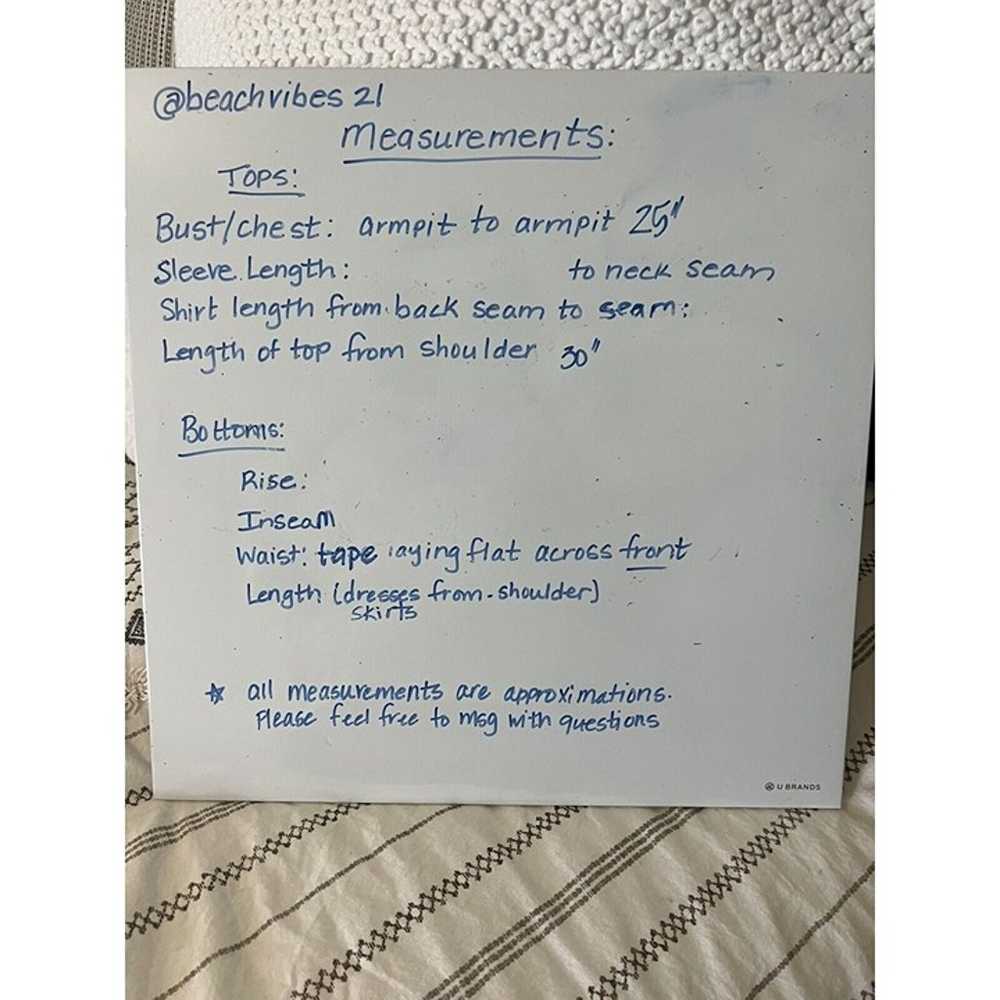 @beachvibes 21
Measurements:
Tops:
Bust/chest: armpit to armpit 25"
Sleeve Length: to neck seam
Shirt length from back seam to seam:
Length of top from shoulder 30"
Bottoms:
Rise:
Inseam
Waist: tape laying flat across front
Length (dresses from shoulder)
skirts
☆ all measurements are approximations.
Please feel free to msg with questions
U BRANDS